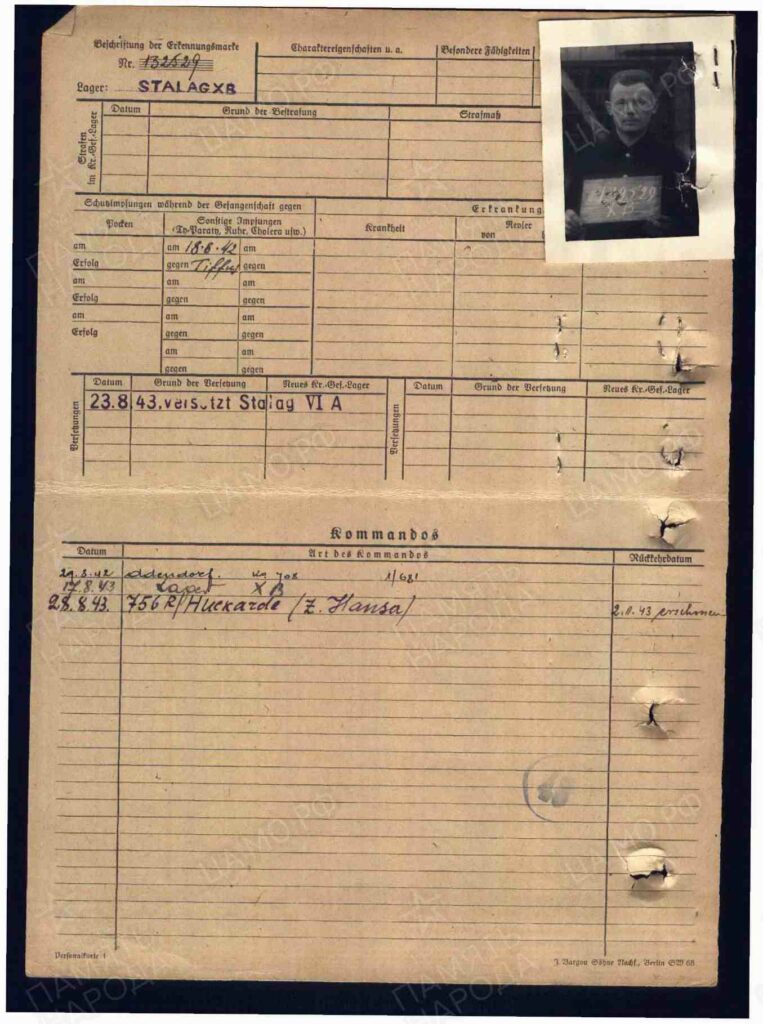 Beschriftung der Erkennungsmarke
Nr. 132529
Lager: STALAG XB
Charaktereigenschaften u. a.
Besondere Fähigkeiten
Strafen im Kr.-Gef.-Lager
Datum
Grund der Bestrafung
Strafmaß
132529
X B
Schutzimpfungen während der Gefangenschaft gegen
Erkrankung
Pocken
Sonstige Impfungen
(Ty.-Paraty., Ruhr, Cholera usw.)
Krankheit
Revier
von
am
am 18.6.42 am
Erfolg
gegen Tiffus gegen
am
am am
Erfolg
gegen gegen
am
am am
Erfolg
gegen gegen
am am
gegen gegen
Versetzungen
Datum
Grund der Versetzung
Neues Kr.-Gef.-Lager
23.8.43. versetzt Stalag VI A
Versetzungen
Datum
Grund der Versetzung
Neues Kr.-Gef.-Lager
Kommandos
Datum
Art des Kommandos
Rückkehrdatum
1/681
17.8.43 Lager X B
28.8.43. 756 R/Huckarde (Z. Hansa)
Personalkarte I
J. Bargou Söhne Nachf., Berlin SW 68
ЦАМО.РФ
ПАМЯТЬ НАРОДА